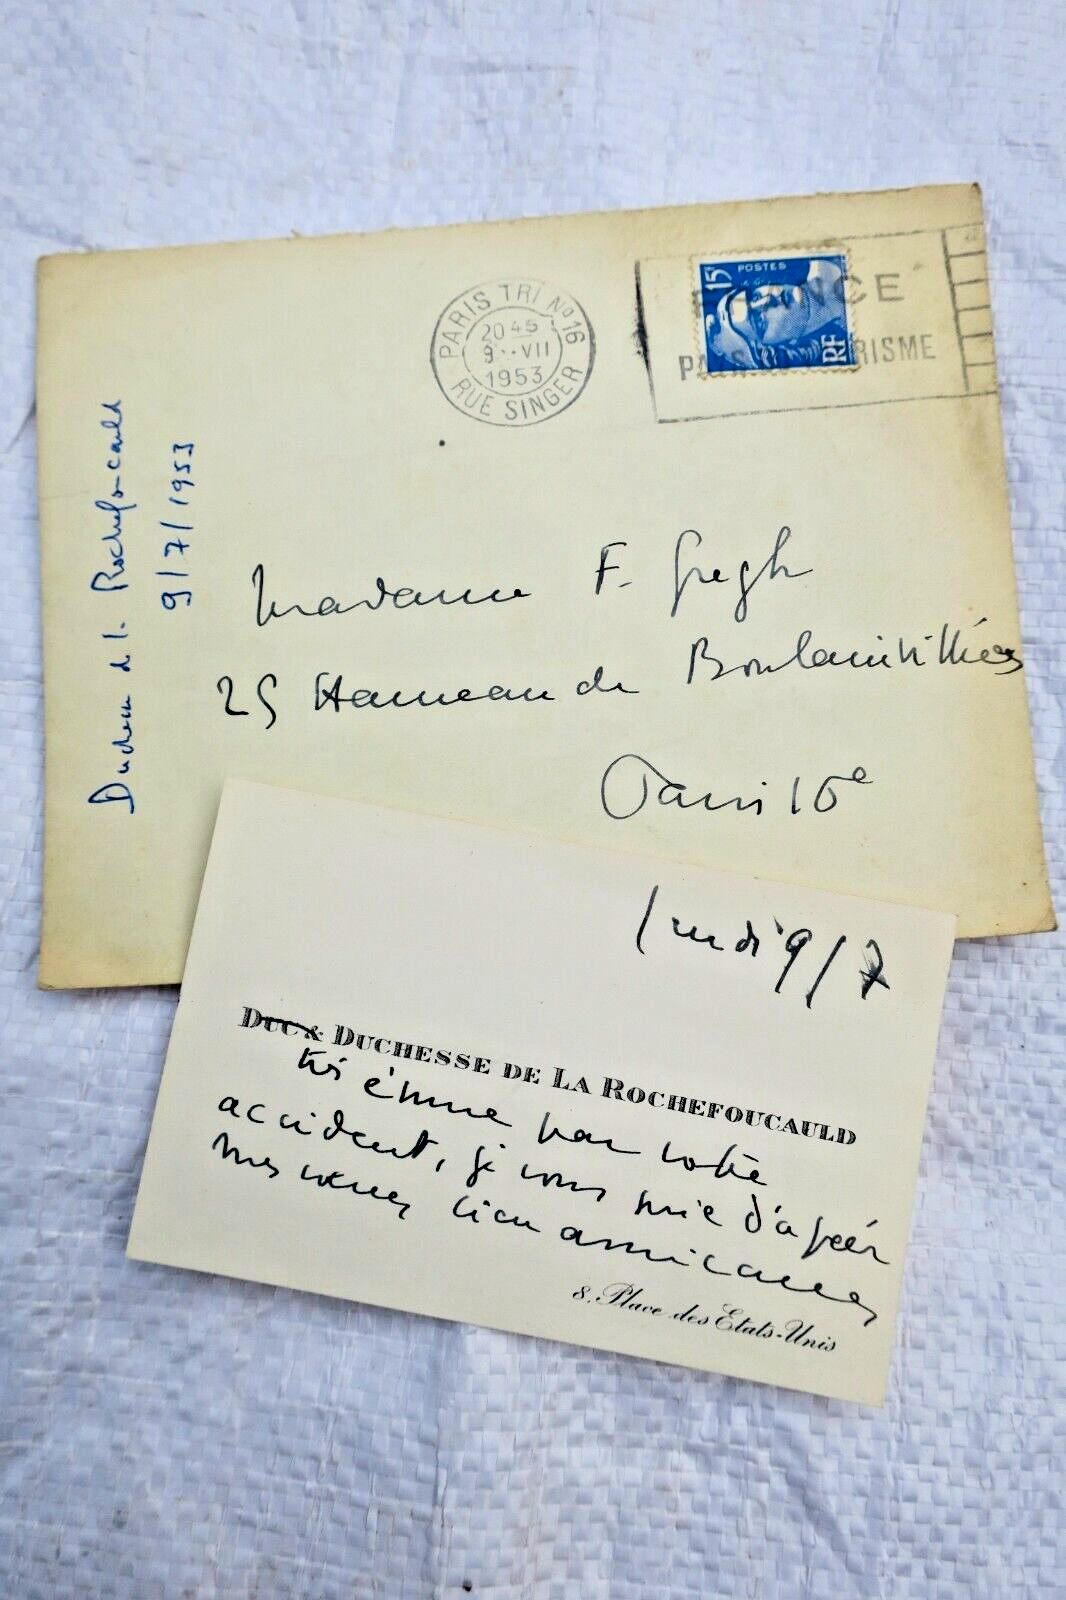 PARIS TRI Nº 16
20 45
9 · VII
1953
RUE SINGER
15F
POSTES
RF
FRANCE
PAYS DU TOURISME
Duchesse de la Rochefoucauld
9/7/1953
Madame F. Gregh
25 Hameau de Boulainvilliers
Paris 16e
9/7
DUC & DUCHESSE DE LA ROCHEFOUCAULD
très émue par votre
accident, je vous prie d'agréer
mes vœux bien
8. Place des Etats-Unis